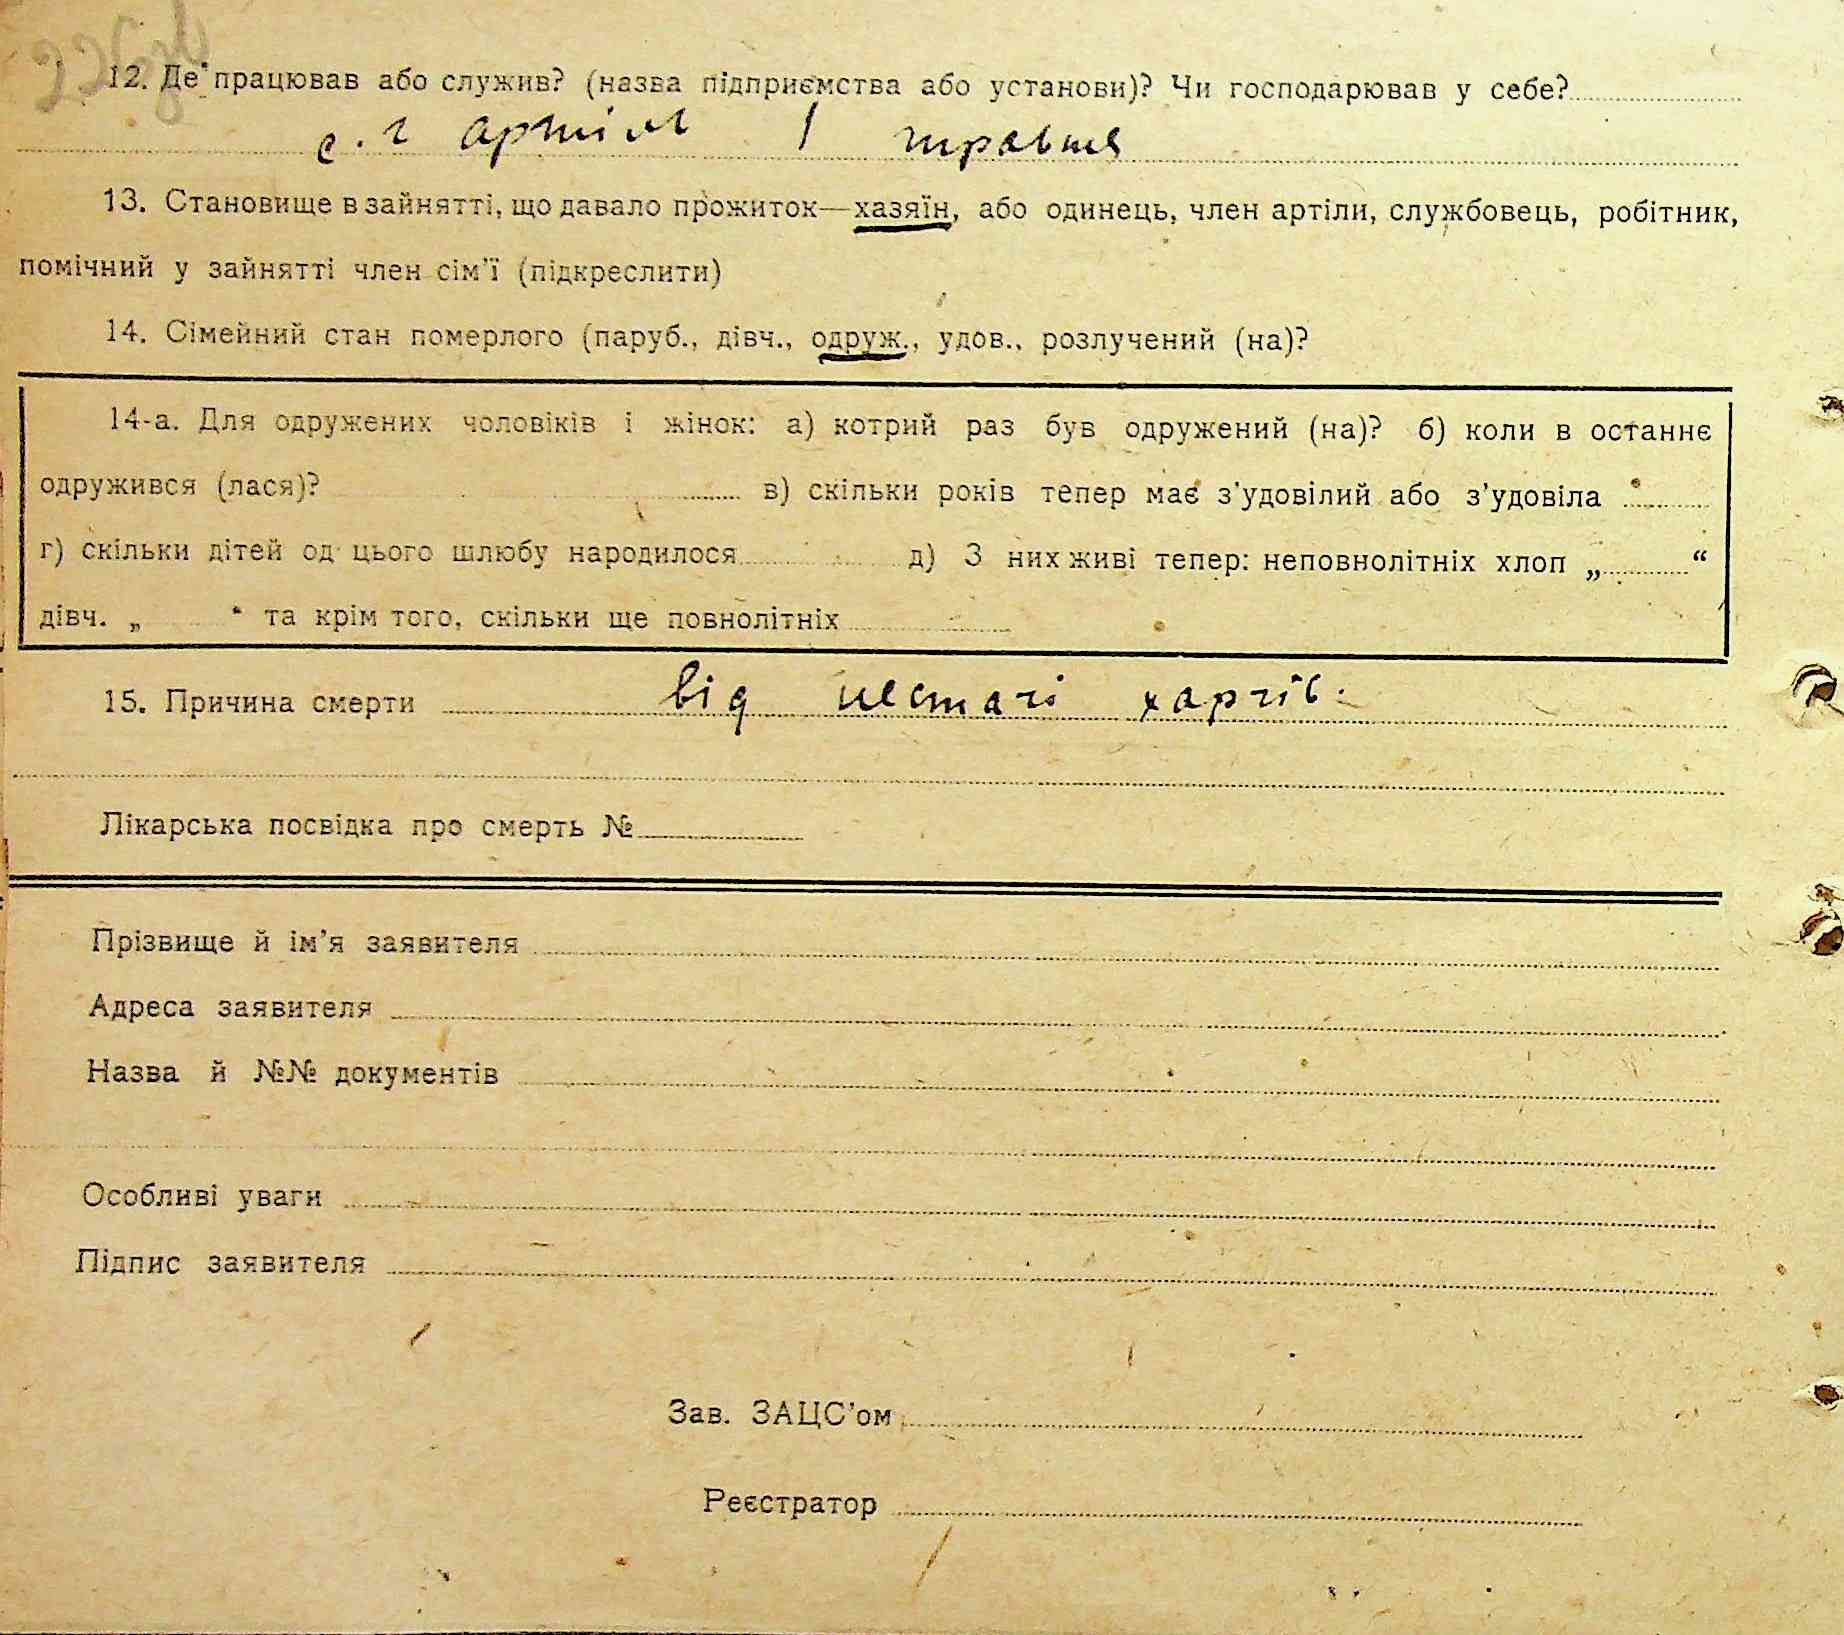 12. Де працював або служив? (назва підприємства або установи)? Чи господарював у себе?
с. г артіль 1 травня
13. Становище в зайнятті, що давало прожиток—хазяїн, або одинець, член артіли, службовець, робітник,
помічний у зайнятті член сім'ї (підкреслити)
14. Сімейний стан померлого (паруб., дівч., одруж., удов., розлучений (на)?
14-а. Для одружених чоловіків і жінок: а) котрий раз був одружений (на)? б) коли в останнє
одружився (лася)? в) скільки років тепер має з'удовілий або з'удовіла
г) скільки дітей од цього шлюбу народилося д) З них живі тепер: неповнолітніх хлоп „ “
дівч. „ “ та крім того, скільки ще повнолітніх
15. Причина смерти від нестачі харчів.
Лікарська посвідка про смерть №
Прізвище й ім'я заявителя
Адреса заявителя
Назва й №№ документів
Особливі уваги
Підпис заявителя
Зав. ЗАЦС'ом
Реєстратор